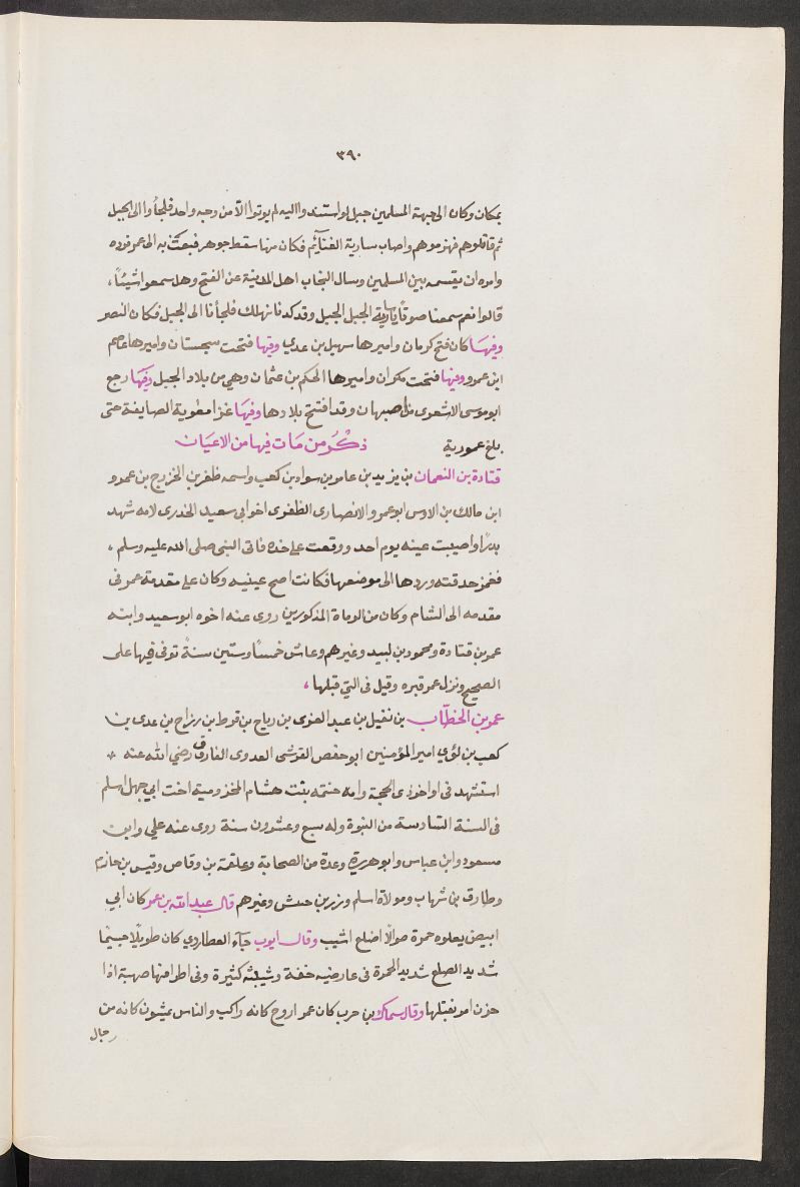 ٣٩٠
بمكان وكان الى جهة المسلمين جبل لو استندوا اليه لم يوتوا الا من وجه واحد فلجأوا الى الجبل
ثم قاتلوهم فهزموهم واصاب سارية الغنائم فكان منها سفط جوهر فبعث به الى عمر فرده
وامره ان يقسمه بين المسلمين وسال النجاب اهل المدينة عن الفتح وهل سمعوا شيئًا،
قالوا نعم سمعنا صوتًا يا سارية الجبل الجبل وقد كدنا نهلك فلجأنا الى الجبل فكان النصر
وفيها كان فتح كرمان واميرها سهيل بن عدي وفيها فتحت سجستان واميرها عاصم
ابن عمرو وفيها فتحت مكران واميرها الحكم بن عثمان وهي من بلاد الجبل وفيها رجع
ابو موسى الاشعرى من اصبهان وقد افتتح بلادها وفيها غزا معوية الصايفة حتى
بلغ عمورية ذكر من مات فيها من الاعيان
قتادة بن النعمان بن يزيد بن عامر بن سواد بن كعب واسمه ظفر بن الخزرج بن عمرو
ابن مالك بن الاوس ابو عمرو الانصارى الظفرى اخو ابى سعيد الخدرى لامه شهد
بدرًا واصيبت عينه يوم احد ووقعت على خده فاتى النبى صلى الله عليه وسلم،
فغمز حدقته وردها الى موضعها فكانت اصح عينيه وكان على مقدمة عمر فى
مقدمه الى الشام وكان من الرماة المذكورين روى عنه اخوه ابو سعيد وابنه
عمر بن قتادة ومحمود بن لبيد وغيرهم وعاش خمسًا وستين سنةً توفى فيها على
الصحيح ونزل عمر قبره وقيل فى التى قبلها،
عمر بن الخطاب بن نفيل بن عبد العزى بن رياح بن قرط بن رزاح بن عدى بن
كعب بن لؤي امير المؤمنين ابو حفص القرشى العدوى الفاروق رضي الله عنه
استشهد فى اواخر ذى الحجة وامه حنتمه بنت هشام المخزومية اخت ابي جهل اسلم
فى السنة السادسة من النبوة وله سبع وعشرون سنة روى عنه علي وابن
مسعود وابن عباس وابو هريرة وعدة من الصحابة وعلقمة بن وقاص وقيس بن حازم
وطارق بن شهاب ومولاه اسلم وزر بن حبش وغيرهم قال عبد الله بن عمر كان ابي
ابيض يعلوه حمرة طوالًا اصلع اشيب وقال ايوب جآء العطاردي كان طويلًا جسيمًا
شديد الصلع شديد الحمرة فى عارضيه خفة وشيبته كثيرة وفى اطرافها صهبة اذا
حزن امر يفتلها وقال سماك بن حرب كان عمر اروح كانه راكب والناس يمشون كانه من
رجال